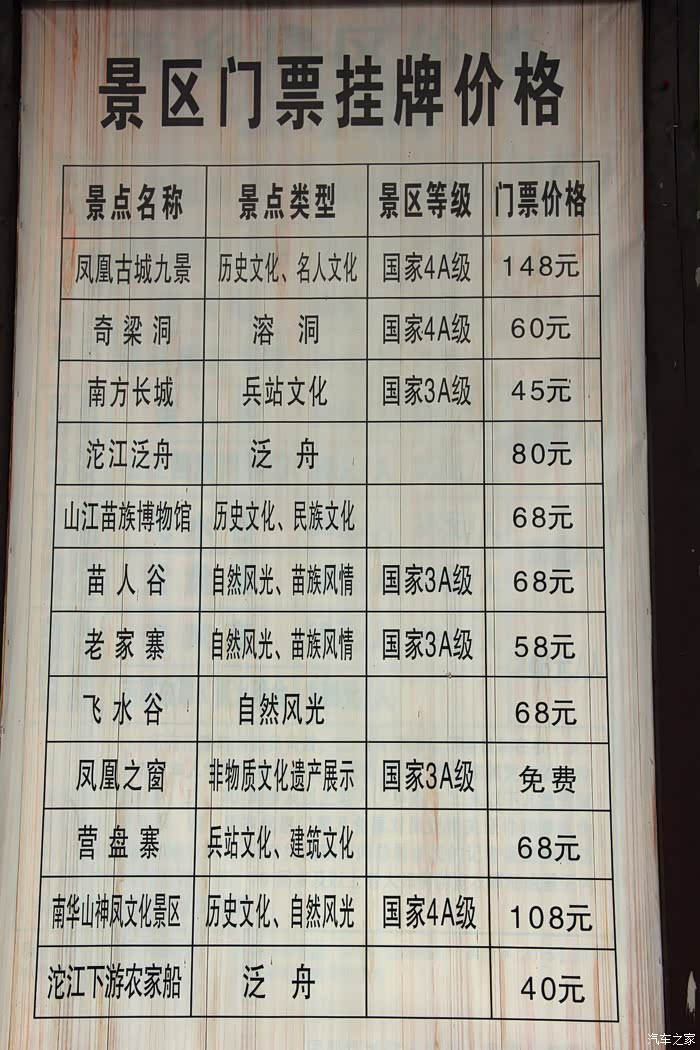 景区门票挂牌价格
景点名称 景点类型 景区等级 门票价格
凤凰古城九景 历史文化、名人文化 国家4A级 148元
奇梁洞 溶洞 国家4A级 60元
南方长城 兵站文化 国家3A级 45元
沱江泛舟 泛舟 80元
山江苗族博物馆 历史文化、民族文化 68元
苗人谷 自然风光、苗族风情 国家3A级 68元
老家寨 自然风光、苗族风情 国家3A级 58元
飞水谷 自然风光 68元
凤凰之窗 非物质文化遗产展示 国家3A级 免费
营盘寨 兵站文化、建筑文化 68元
南华山神凤文化景区 历史文化、自然风光 国家4A级 108元
沱江下游农家船 泛舟 40元
汽车之家